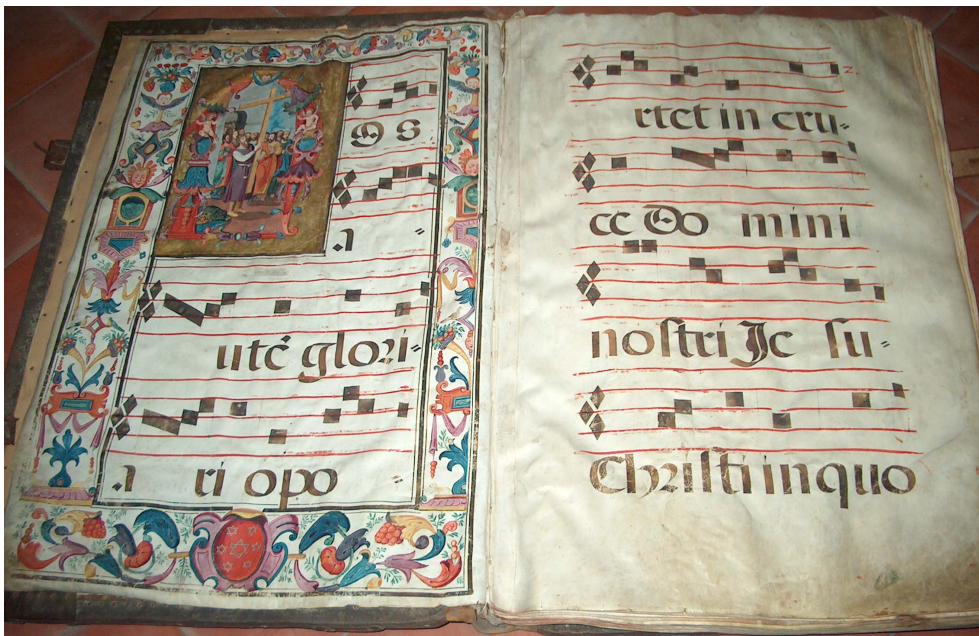 OS
a
utē glori=
a ri opo=
rtet in cru=
ce Do mini
nostri Je su=
Christi in quo